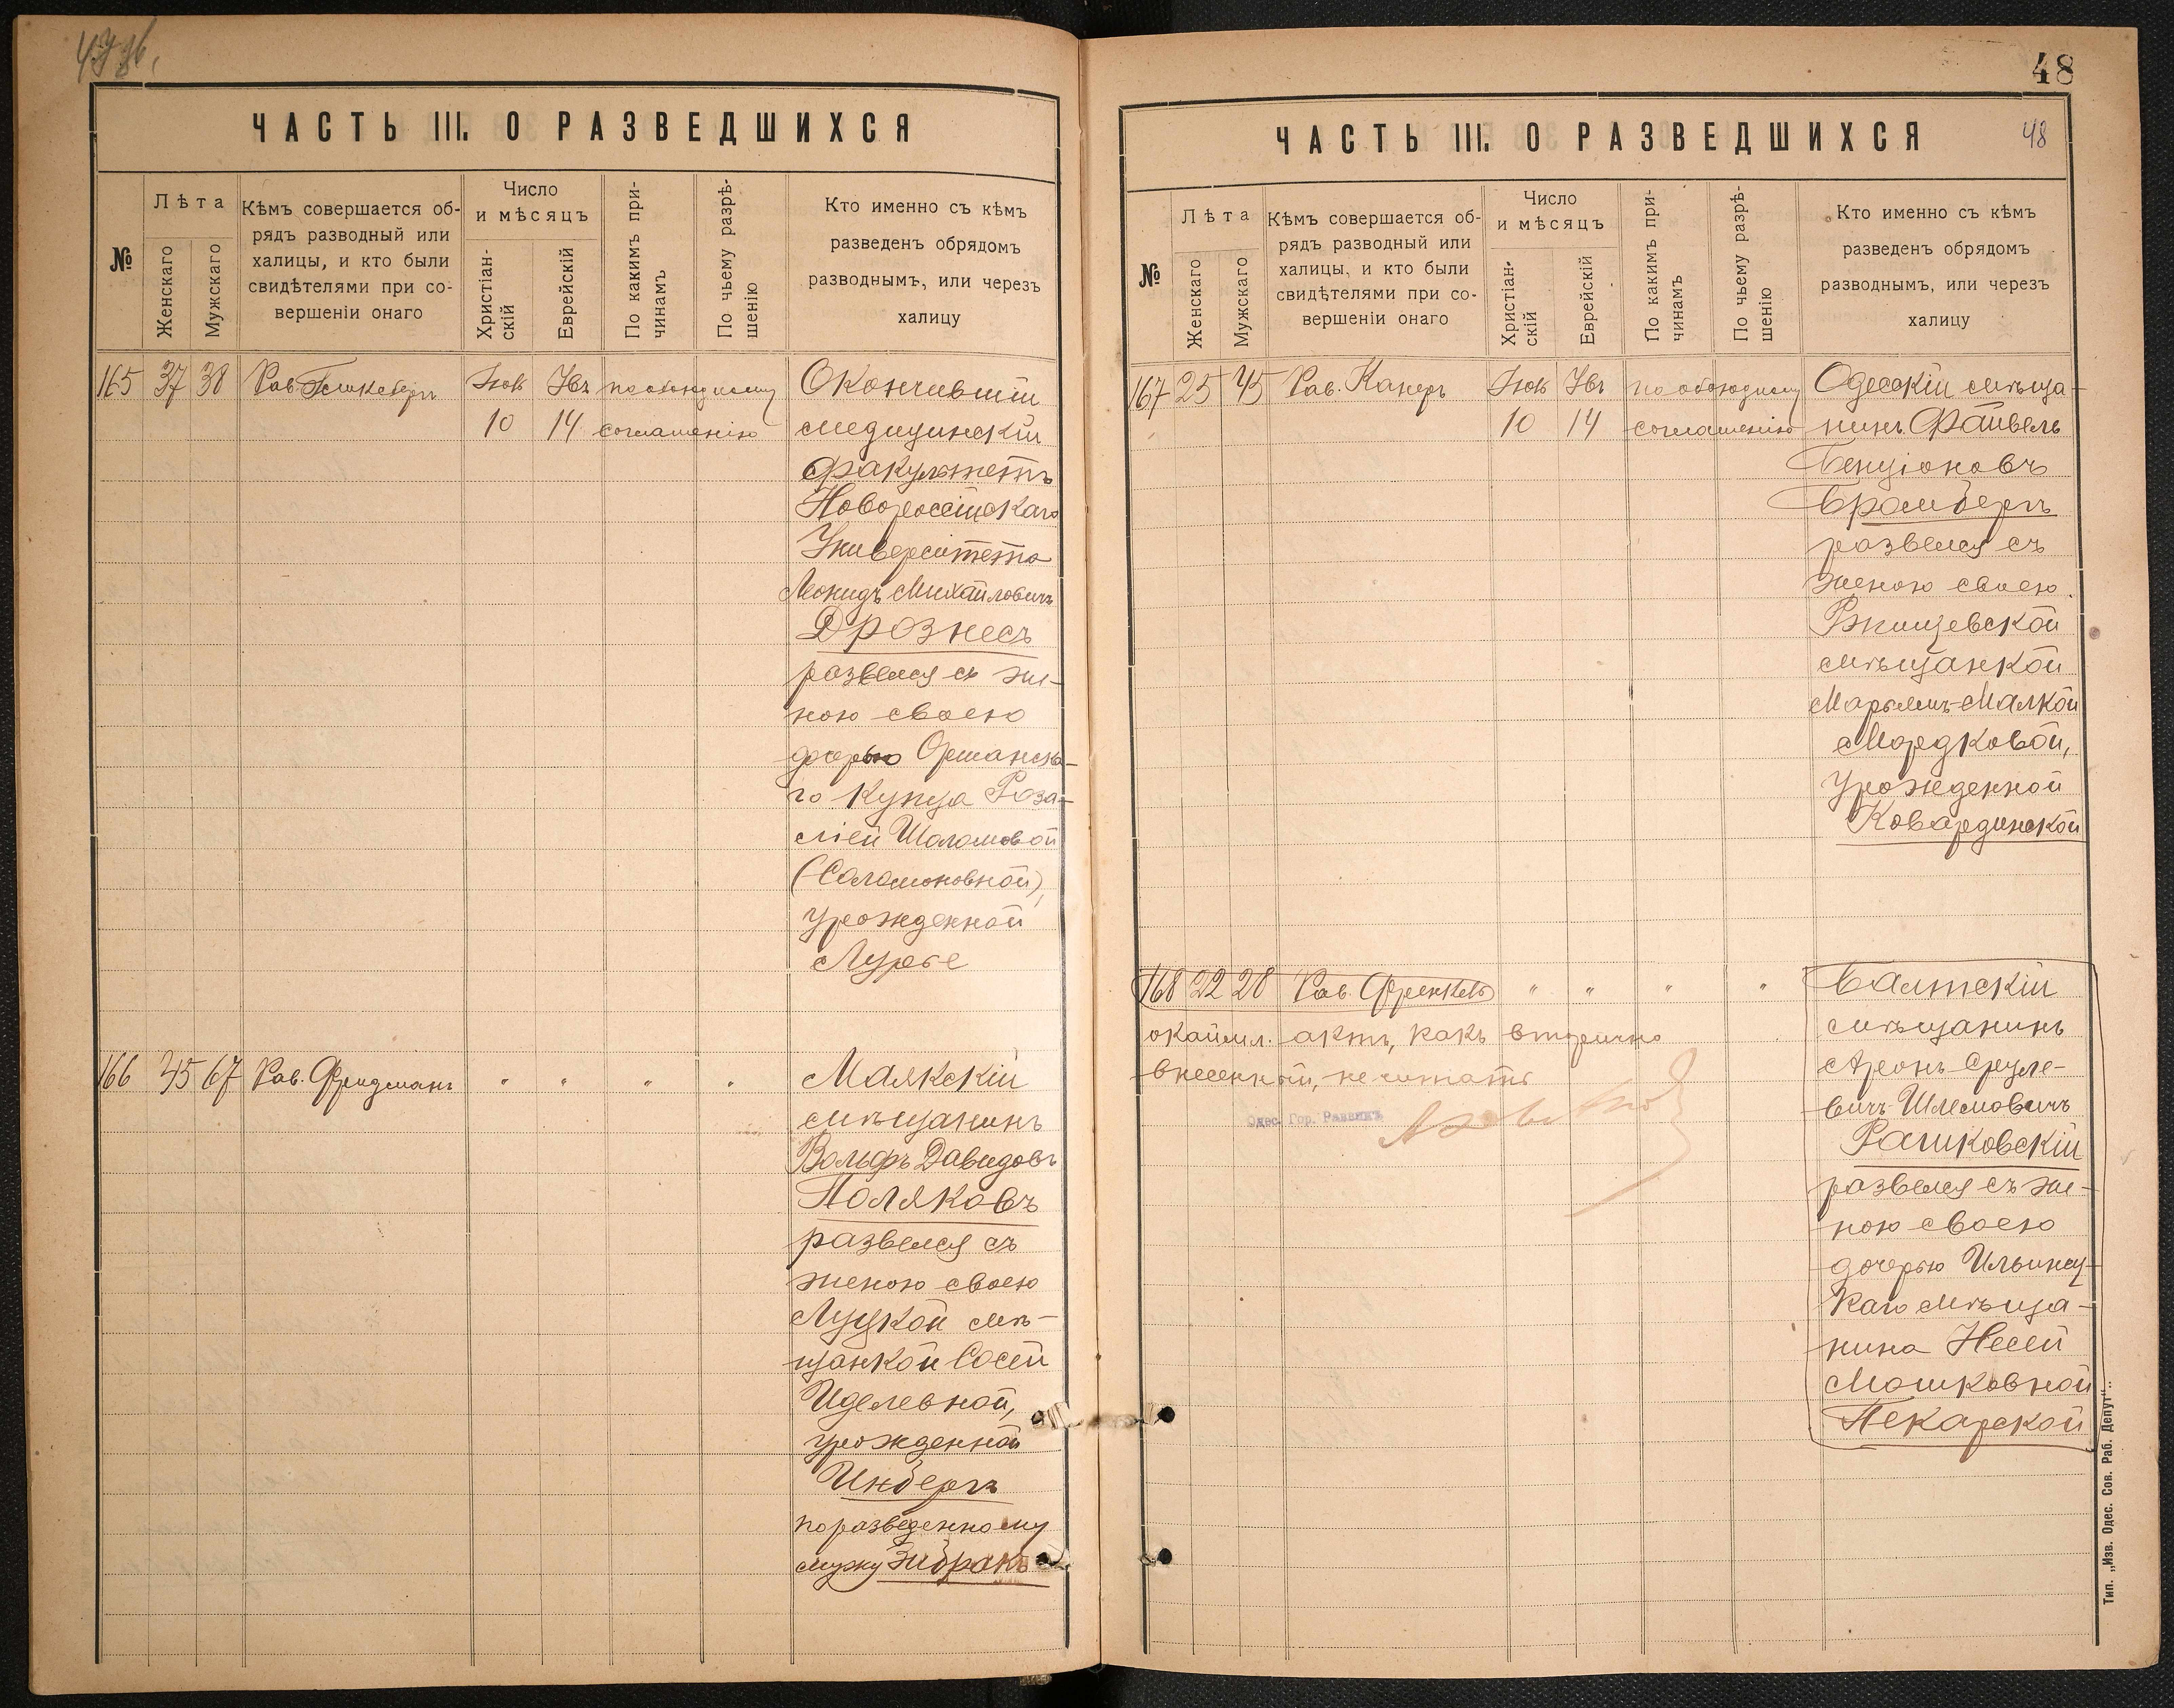 47об.
ЧАСТЬ III. О РАЗВЕДШИХСЯ
№
Лѣта
Женскаго
Мужскаго
Кѣмъ совершается об-
рядъ разводный или
халицы, и кто были
свидѣтелями при со-
вершеніи онаго
Число
и мѣсяцъ
Христіан-
скій
Еврейскій
По какимъ при-
чинамъ
По чьему разрѣ-
шенію
Кто именно съ кѣмъ
разведенъ обрядомъ
разводнымъ, или черезъ
халицу
165 37 38 Рав. Нояб 10 14 по обоюдному
соглашенію
Окончившій
медицинскій
факультетъ
Новороссійскаго
Университета
Леонидъ Михайловичъ
Дрознесъ
развелся съ же-
ною своею
дочерью Оршанска-
го купца Роза-
ліей Шоломовой
(Соломоновной),
урожденной
Лурье
166 45 67 Рав. Фридманъ " " " "
Маякскій
мѣщанинъ
Вольфъ Давидовъ
Поляковъ
развелся съ
женою своею
Луцкой мѣ-
щанкой Сосей
Иделевной,
урожденной
Инберъ
по разведенному
мужу Зибракъ
48
ЧАСТЬ III. О РАЗВЕДШИХСЯ
48
№
Лѣта
Женскаго
Мужскаго
Кѣмъ совершается об-
рядъ разводный или
халицы, и кто были
свидѣтелями при со-
вершеніи онаго
Число
и мѣсяцъ
Христіан-
скій
Еврейскій
По какимъ при-
чинамъ
По чьему разрѣ-
шенію
Кто именно съ кѣмъ
разведенъ обрядомъ
разводнымъ, или черезъ
халицу
167 25 45 Рав. Канеръ 10 14 по обоюдному
соглашенію
Одесскій мѣща-
нинъ Файвель
Бенціоновъ
Бромбергъ
развелся съ
женою своею
Ржищевской
мѣщанкой
Марьемъ-Малкой
Мордковой,
урожденной
Ковардинской
168 22 28 Рав. Френкель " " " "
окаймл. актъ, какъ вторично
внесенный, не читать
Одес. Гор. Раввинъ
Балтскій
мѣщанинъ
Аронъ Сруле-
вичъ-Шлемовичъ
Рашковскій
развелся съ же-
ною своею
дочерью Ильинец-
каго мѣща-
нина Несей
Мошковной
Пекарской
Тип. „Изв. Одес. Сов. Раб. Депут"..